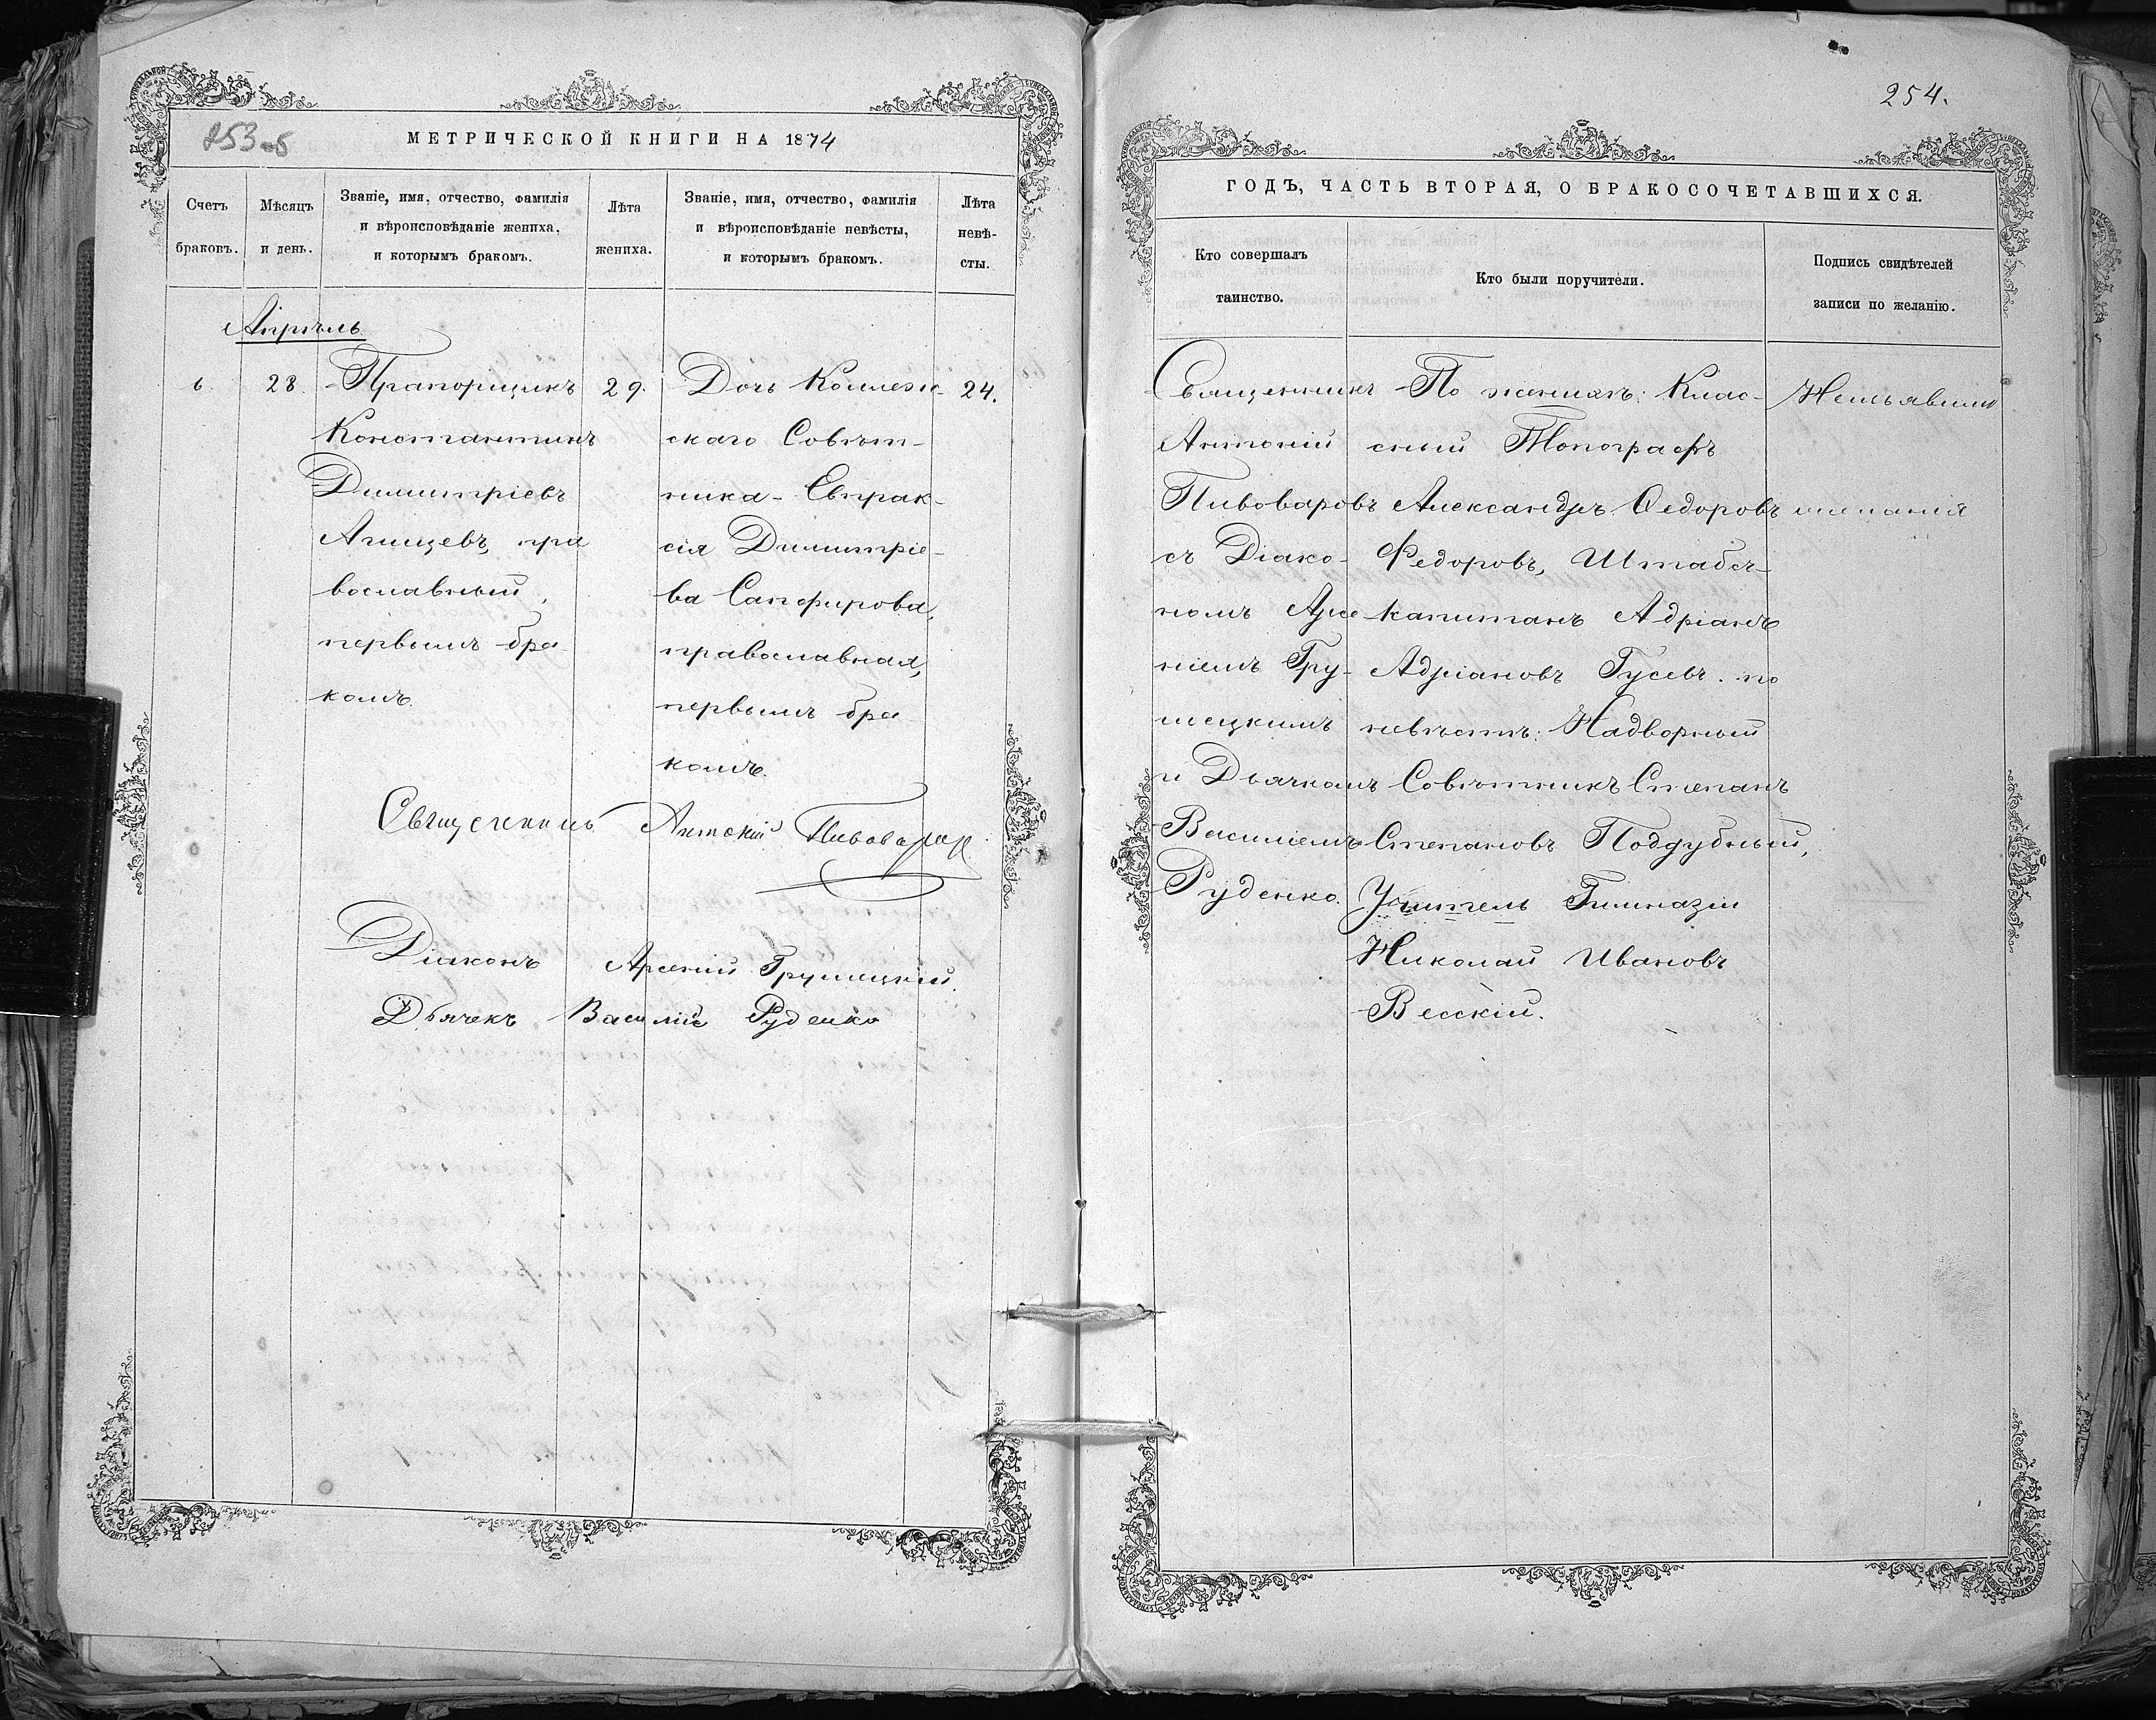 253 об
МЕТРИЧЕСКОЙ КНИГИ НА 1874
Счетъ
браковъ.
Мѣсяцъ
и день.
Званіе, имя, отчество, фамилія
и вѣроисповѣданіе жениха,
и которымъ бракомъ.
Лѣта
жениха.
Званіе, имя, отчество, фамилія
и вѣроисповѣданіе невѣсты,
и которымъ бракомъ.
Лѣта
невѣ-
сты.
Апрѣль
6.
28.
Прапорщикъ
Константинъ
Димитріевъ
Агищевъ, пра
вославный,
первымъ бра
комъ.
29.
Дочь Коллеж-
скаго Совѣт-
ника - Евпрак-
сія Димитріе-
ва Сапфирова,
православная,
первымъ бра
комъ.
24.
Священникъ Антоній Пивоваров
Діаконъ Арсеній Грушецкій.
Дьячекъ Василій Руденко
254.
ГОДЪ, ЧАСТЬ ВТОРАЯ, О БРАКОСОЧЕТАВШИХСЯ.
Кто совершалъ
таинство.
Кто были поручители.
Подпись свидѣтелей
записи по желанію.
Священникъ
Антоній
Пивоваровъ
съ Діако-
номъ Арсе-
ніемъ Гру-
шецкимъ
и Дьячкомъ
Василіемъ
Руденко.
По женихѣ: Клас-
сный Топографъ
Александръ Ѳедоровъ
Федоровъ, Штабсъ-
капитанъ Адріанъ
Адріановъ Гусевъ. по
невѣстѣ: Надворный
Совѣтникъ Степанъ
Степановъ Поддубный,
Учитель Гимназіи
Николай Ивановъ
Весскій.
Неизъявили
желанія